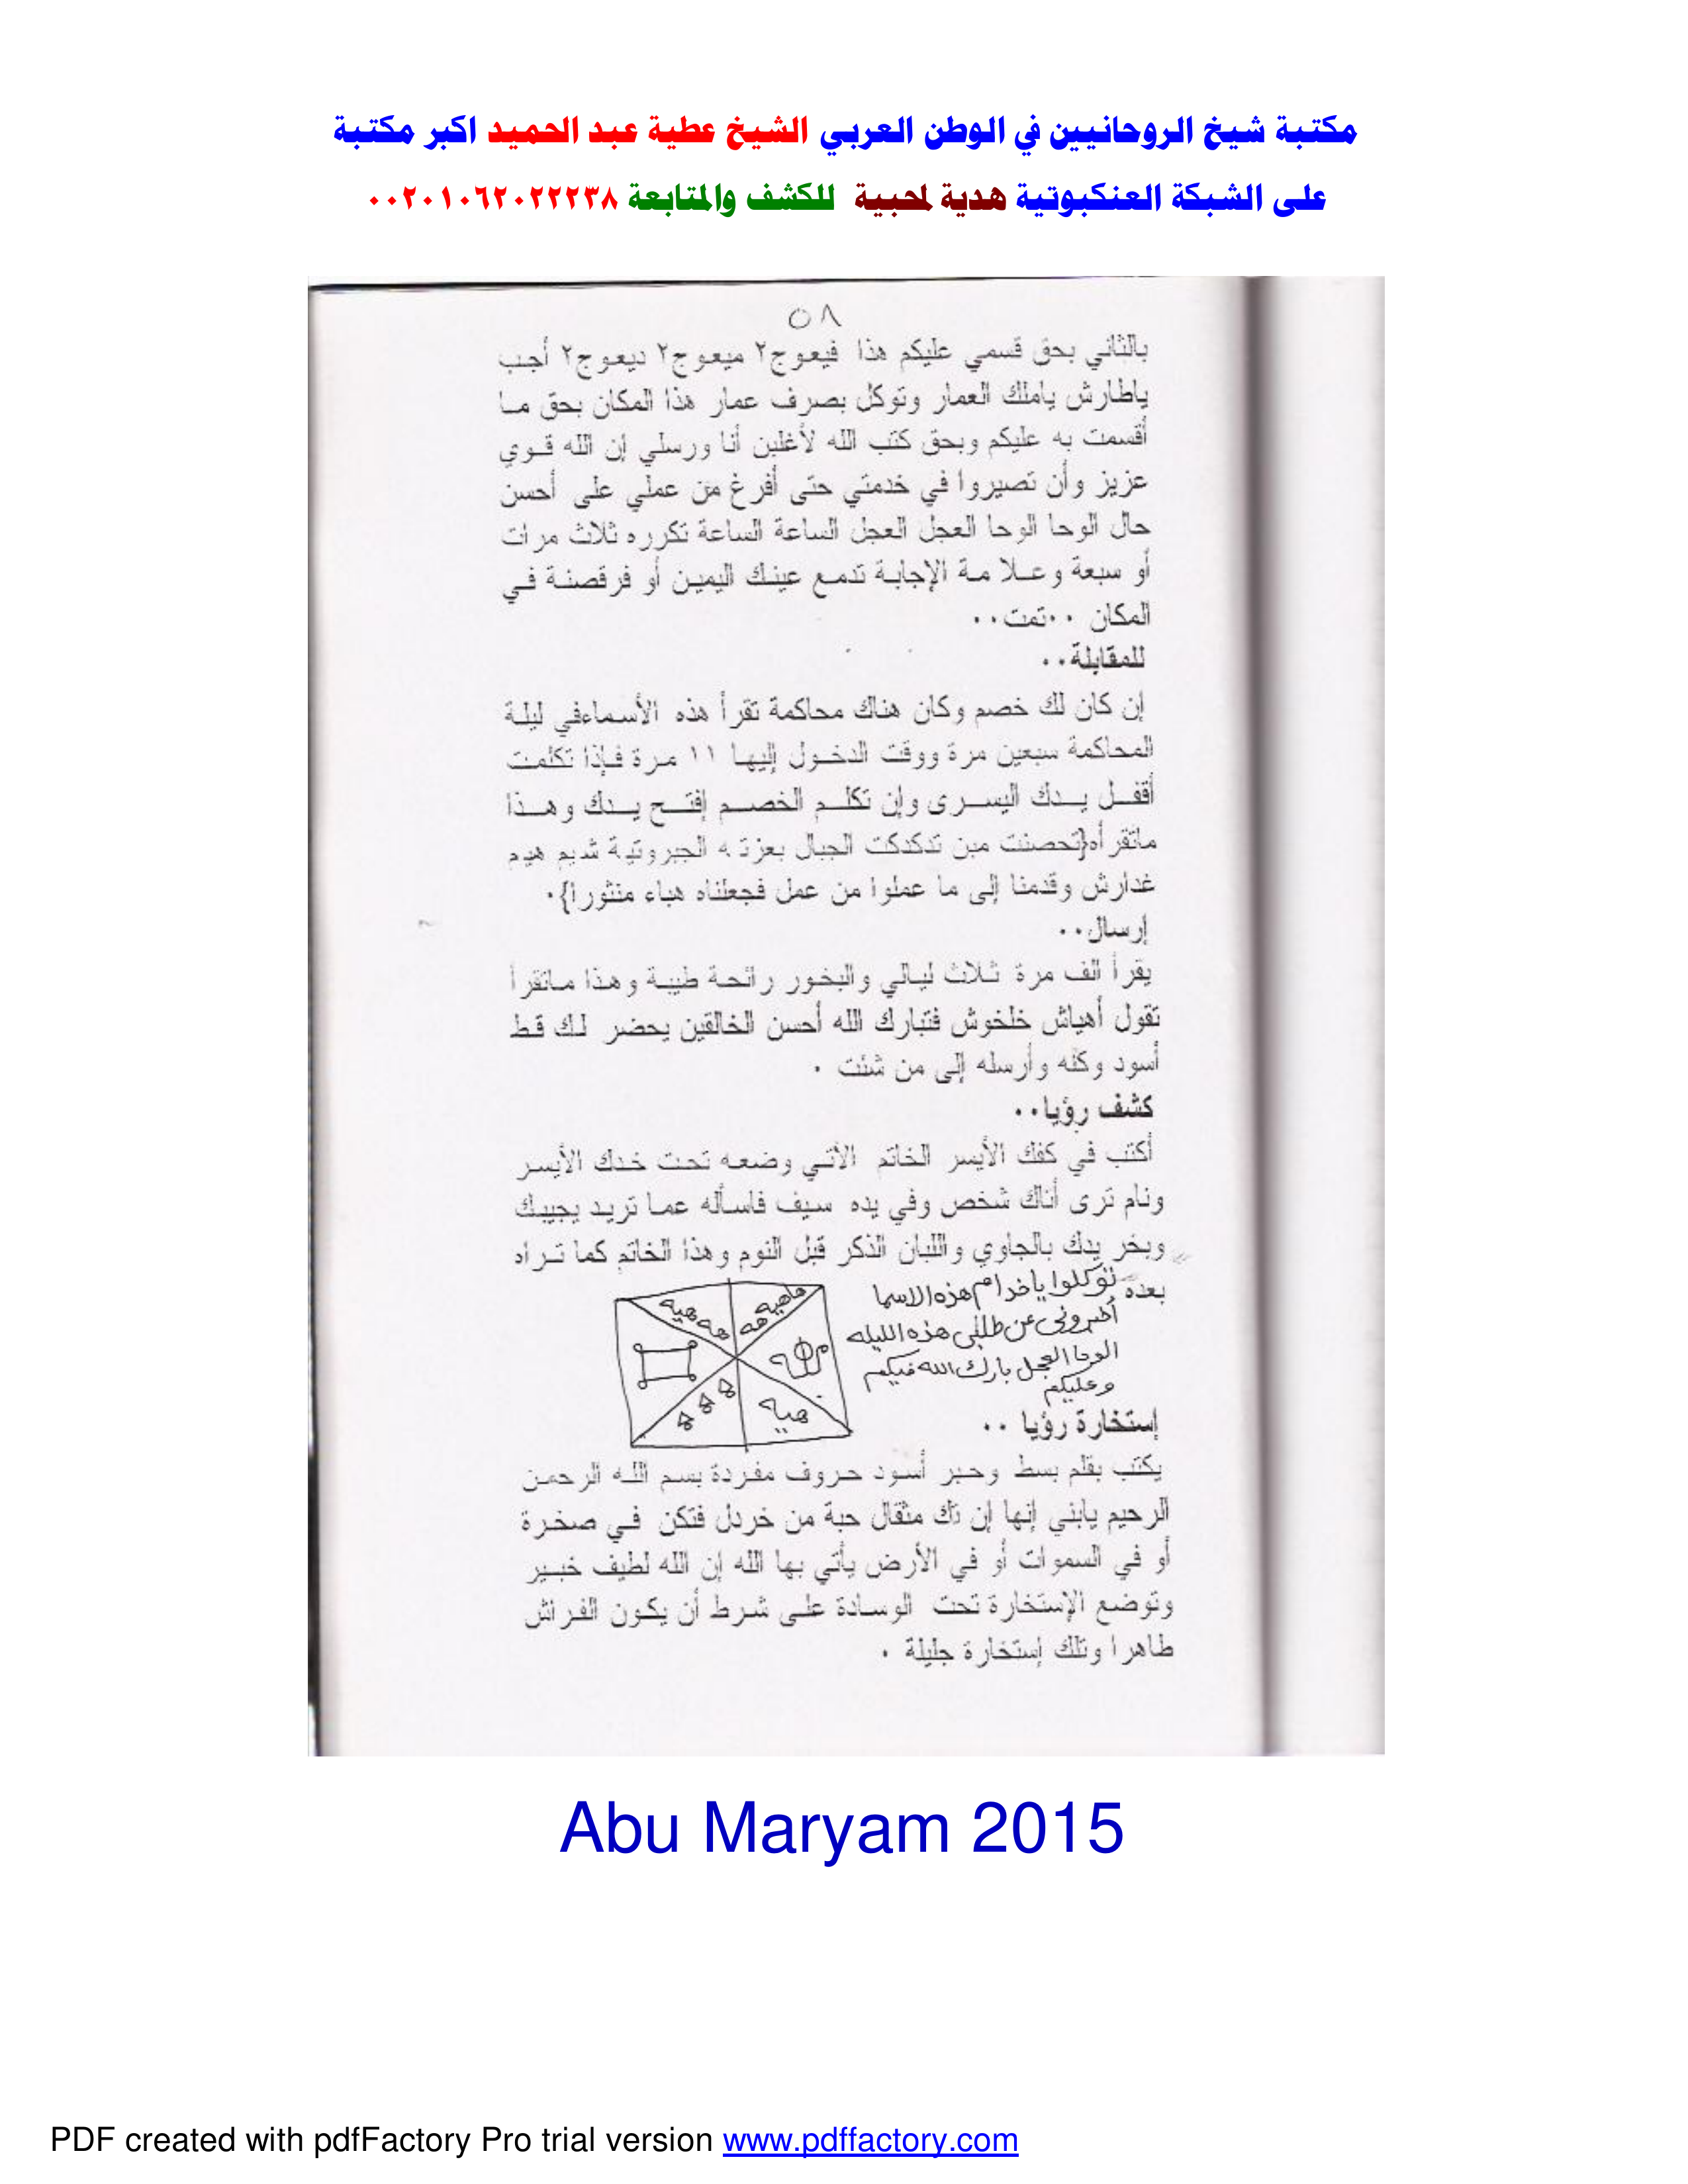 مكتبة شيخ الروحانيين في الوطن العربي الشيخ عطية عبد الحميد اكبر مكتبة
على الشبكة العنكبوتية هدية لمحبية للكشف والمتابعة ٠٠٢٠١٠٦٢٠٢٢٢٣٨
٥٨
بالثاني بحق قسمي عليكم هذا فيعوج٢ ميعوج٢ ديعوج٢ أجب
ياطارش ياملك العمار وتوكل بصرف عمار هذا المكان بحق ما
أقسمت به عليكم وبحق كتب الله لأغلبن أنا ورسلي إن الله قوي
عزيز وأن تصيروا في خدمتي حتى أفرغ من عملي على أحسن
حال الوحا الوحا العجل العجل الساعة الساعة تكرره ثلاث مرات
أو سبعة وعلا مة الإجابة تدمع عينك اليمين أو فرقصنة في
المكان ٠٠تمت٠٠
للمقابلة٠٠
إن كان لك خصم وكان هناك محاكمة تقرأ هذه الأسماءفي ليلة
المحاكمة سبعين مرة ووقت الدخول إليها ١١ مرة فإذا تكلمت
أقفل يدك اليسرى وإن تكلم الخصم إفتح يدك وهذا
ماتقرأه{تحصنت مبن تدكدكت الجبال بعزته الجبروتية شيم هيم
غدارش وقدمنا إلى ما عملوا من عمل فجعلناه هباء منثورا}٠
إرسال٠٠
يقرأ الف مرة ثلاث ليالي والبخور رائحة طيبة وهذا ماتقرأ
تقول أهياش خلخوش فتبارك الله أحسن الخالقين يحضر لك قط
أسود وكله وأرسله إلى من شئت ٠
كشف رؤيا٠٠
أكتب في كفك الأيسر الخاتم الأتي وضعه تحت خدك الأيسر
ونام ترى أتاك شخص وفي يده سيف فاسأله عما تريد يجيبك
وبخر يدك بالجاوي واللبان الذكر قبل النوم وهذا الخاتم كما تراه
بعده توكلوا ياخدام هذه الاسما
أخبروني عن طلبي هذه الليله
الوحا العجل بارك الله فيكم
وعليكم
هيه هه هه ماهيه
هيه
إستخارة رؤيا ٠٠
يكتب بقلم بسط وحبر أسود حروف مفردة بسم الله الرحمن
الرحيم يابني إنها إن تك مثقال حبة من خردل فتكن في صخرة
أو في السموات أو في الأرض يأتي بها الله إن الله لطيف خبير
وتوضع الإستخارة تحت الوسادة على شرط أن يكون الفراش
طاهرا وتلك إستخارة جليلة ٠
Abu Maryam 2015
PDF created with pdfFactory Pro trial version www.pdffactory.com